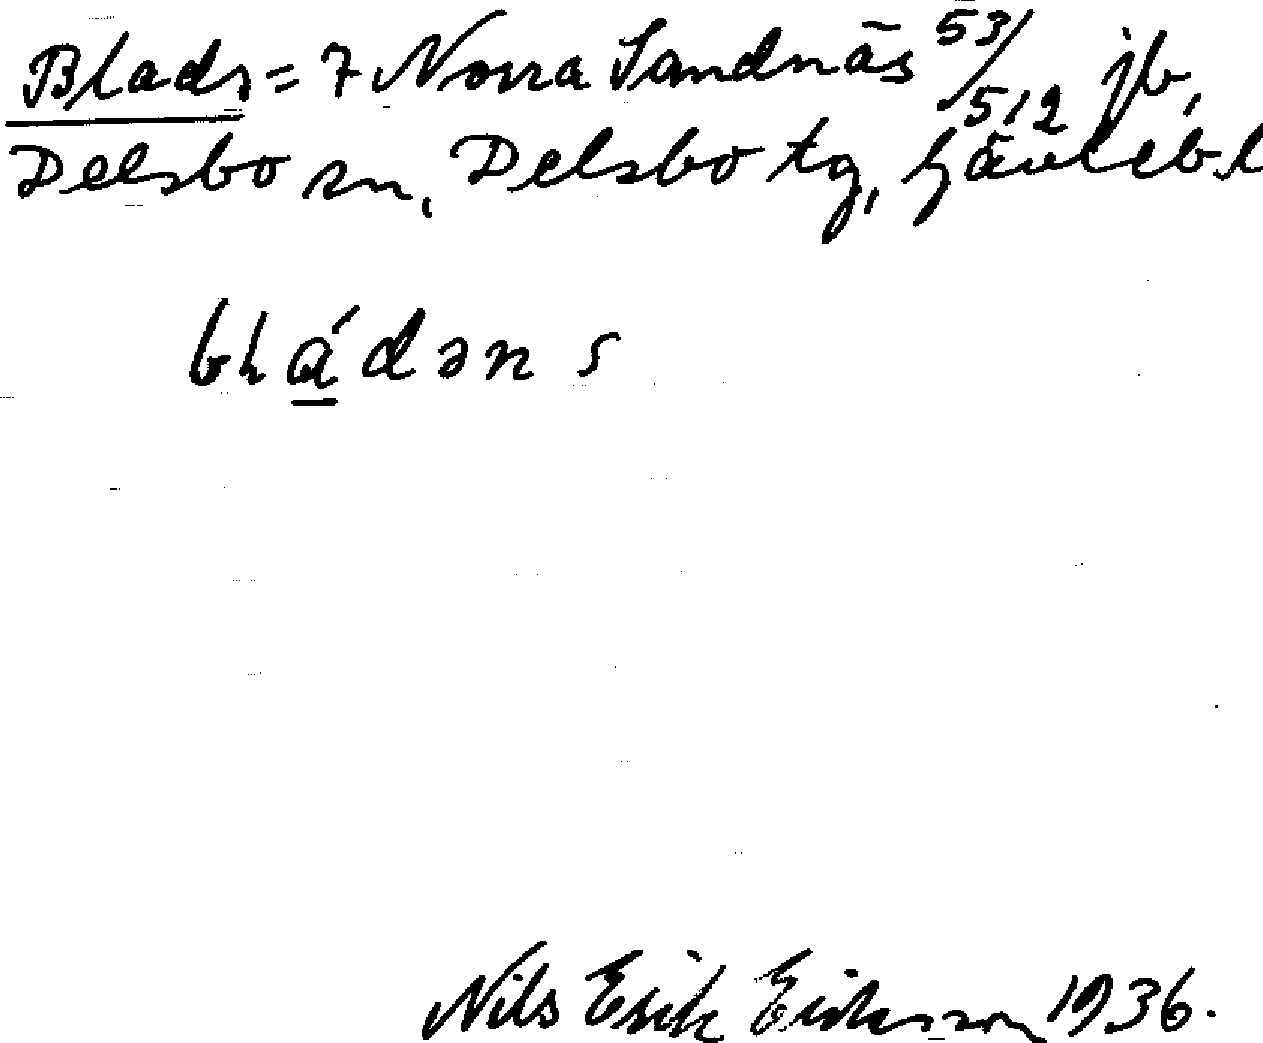 Blads = 7 Norra Sandnäs 53/512 jb,
Delsbo sn, Delsbo tg, Gävlebl
bládəns
Nils Erik Eriksson 1936.